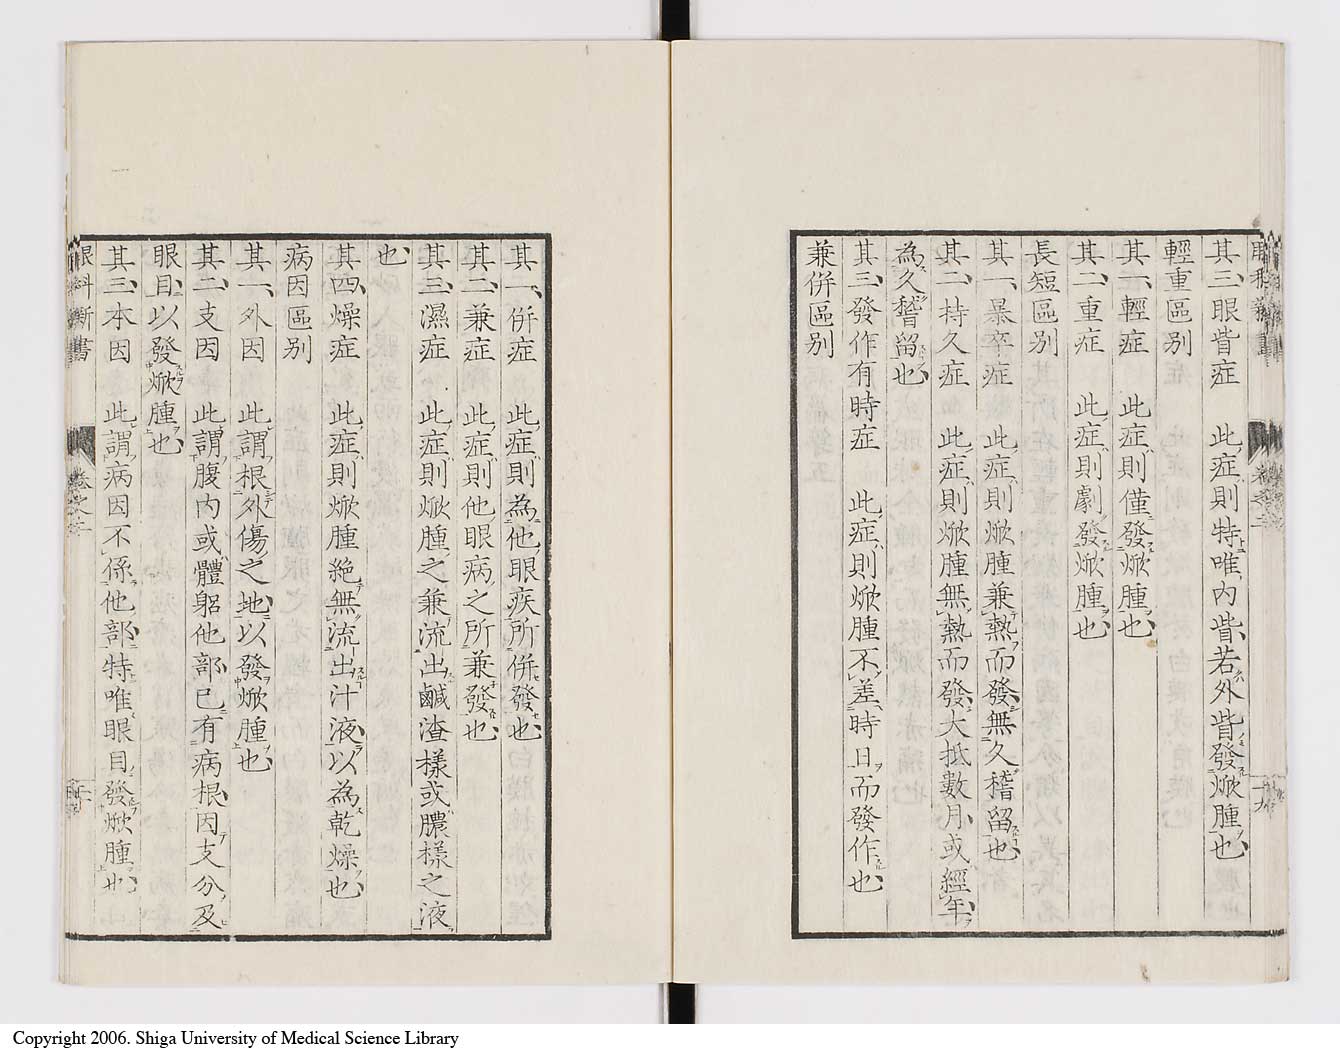 其三、眼眥症　此症則特唯內眥若外眥發焮腫也
輕重區別
其一、輕症　此症則僅發焮腫也
其二、重症　此症則劇發焮腫也
長短區別
其一、暴卒症　此症則焮腫兼熱而發無久稽留也
其二、持久症　此症則焮腫無熱而發大抵數月或經年
為久稽留也
其三、發作有時症　此症則焮腫不差時日而發作也
兼併區別
其一、併症　此症則為他眼疾所併發也
其二、兼症　此症則他眼病之所兼發也
其三、濕症　此症則焮腫之兼流出鹹渣樣或膿樣之液
也
其四、燥症　此症則焮腫絕無流出汁液以為乾燥也
病因區別
其一、外因　此謂根外傷之地以發焮腫也
其二、支因　此謂腹內或體躳他部已有病根因支分及
眼目以發焮腫也
其三、本因　此謂病因不係他部特唯眼目發焮腫也
眼科新書
卷之二
Copyright 2006. Shiga University of Medical Science Library